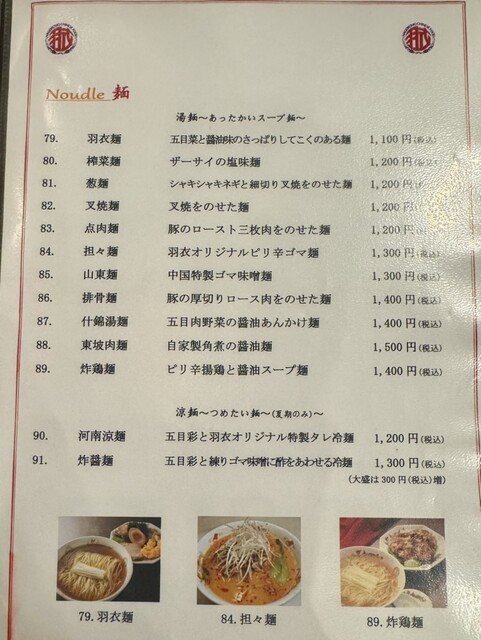 Noudle 麺
湯麺～あったかいスープ麺～
79. 羽衣麺 五目菜と醤油味のさっぱりしてこくのある麺 1,100円(税込)
80. 榨菜麺 ザーサイの塩味麺 1,200円(税込)
81. 葱麺 シャキシャキネギと細切り叉焼をのせた麺 1,200円
82. 叉焼麺 叉焼をのせた麺 1,200円
83. 点肉麺 豚のロースト三枚肉をのせた麺 1,200円(税込)
84. 担々麺 羽衣オリジナルピリ辛ゴマ麺 1,300円(税込)
85. 山東麺 中国特製ゴマ味噌麺 1,300円(税込)
86. 排骨麺 豚の厚切りロース肉をのせた麺 1,400円(税込)
87. 什錦湯麺 五目肉野菜の醤油あんかけ麺 1,400円(税込)
88. 東坡肉麺 自家製角煮の醤油麺 1,500円(税込)
89. 炸鶏麺 ピリ辛揚鶏と醤油スープ麺 1,400円(税込)
涼麺～つめたい麺～(夏期のみ)～
90. 河南涼麺 五目彩と羽衣オリジナル特製タレ冷麺 1,200円(税込)
91. 炸醤麺 五目彩と練りゴマ味噌に酢をあわせる冷麺 1,300円(税込)
(大盛は300円(税込)増)
79. 羽衣麺 84. 担々麺 89. 炸鶏麺